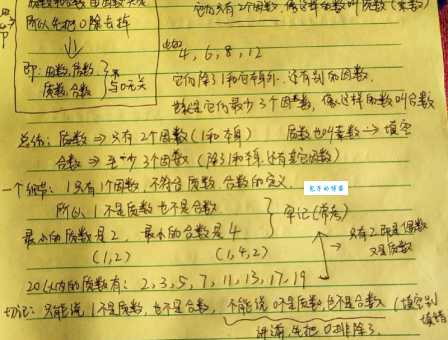 所以先把0除去掉
它们只有2个因数,像这样的数叫质数(素数)
即:因数,倍数
质数,合数
与0无关
4,6,8,12
它们除了1和它本身,还有别的因数,
它们最少3个因数,像这样的数叫合数
总结:质数⇒只有2个因数(1和本身) 质数也叫素数→填空
合数⇒至少3个因数(除1和本身,还有其它因数)
一个 1只有1个因数,不符合质数,合数的定义.
所以1不是质数也不是合数
牢记(常考)
最小的质数是2,最小的合数是4
(1,2) (1,4,2)
只有2既是偶数
又是质数
20以内的质数有:2,3,5,7,11,13,17,19
切记:只能说1不是质数,也不是合数,不能说0不是质数,也不是合数(填空别
填错
讲满,先把0排除了.